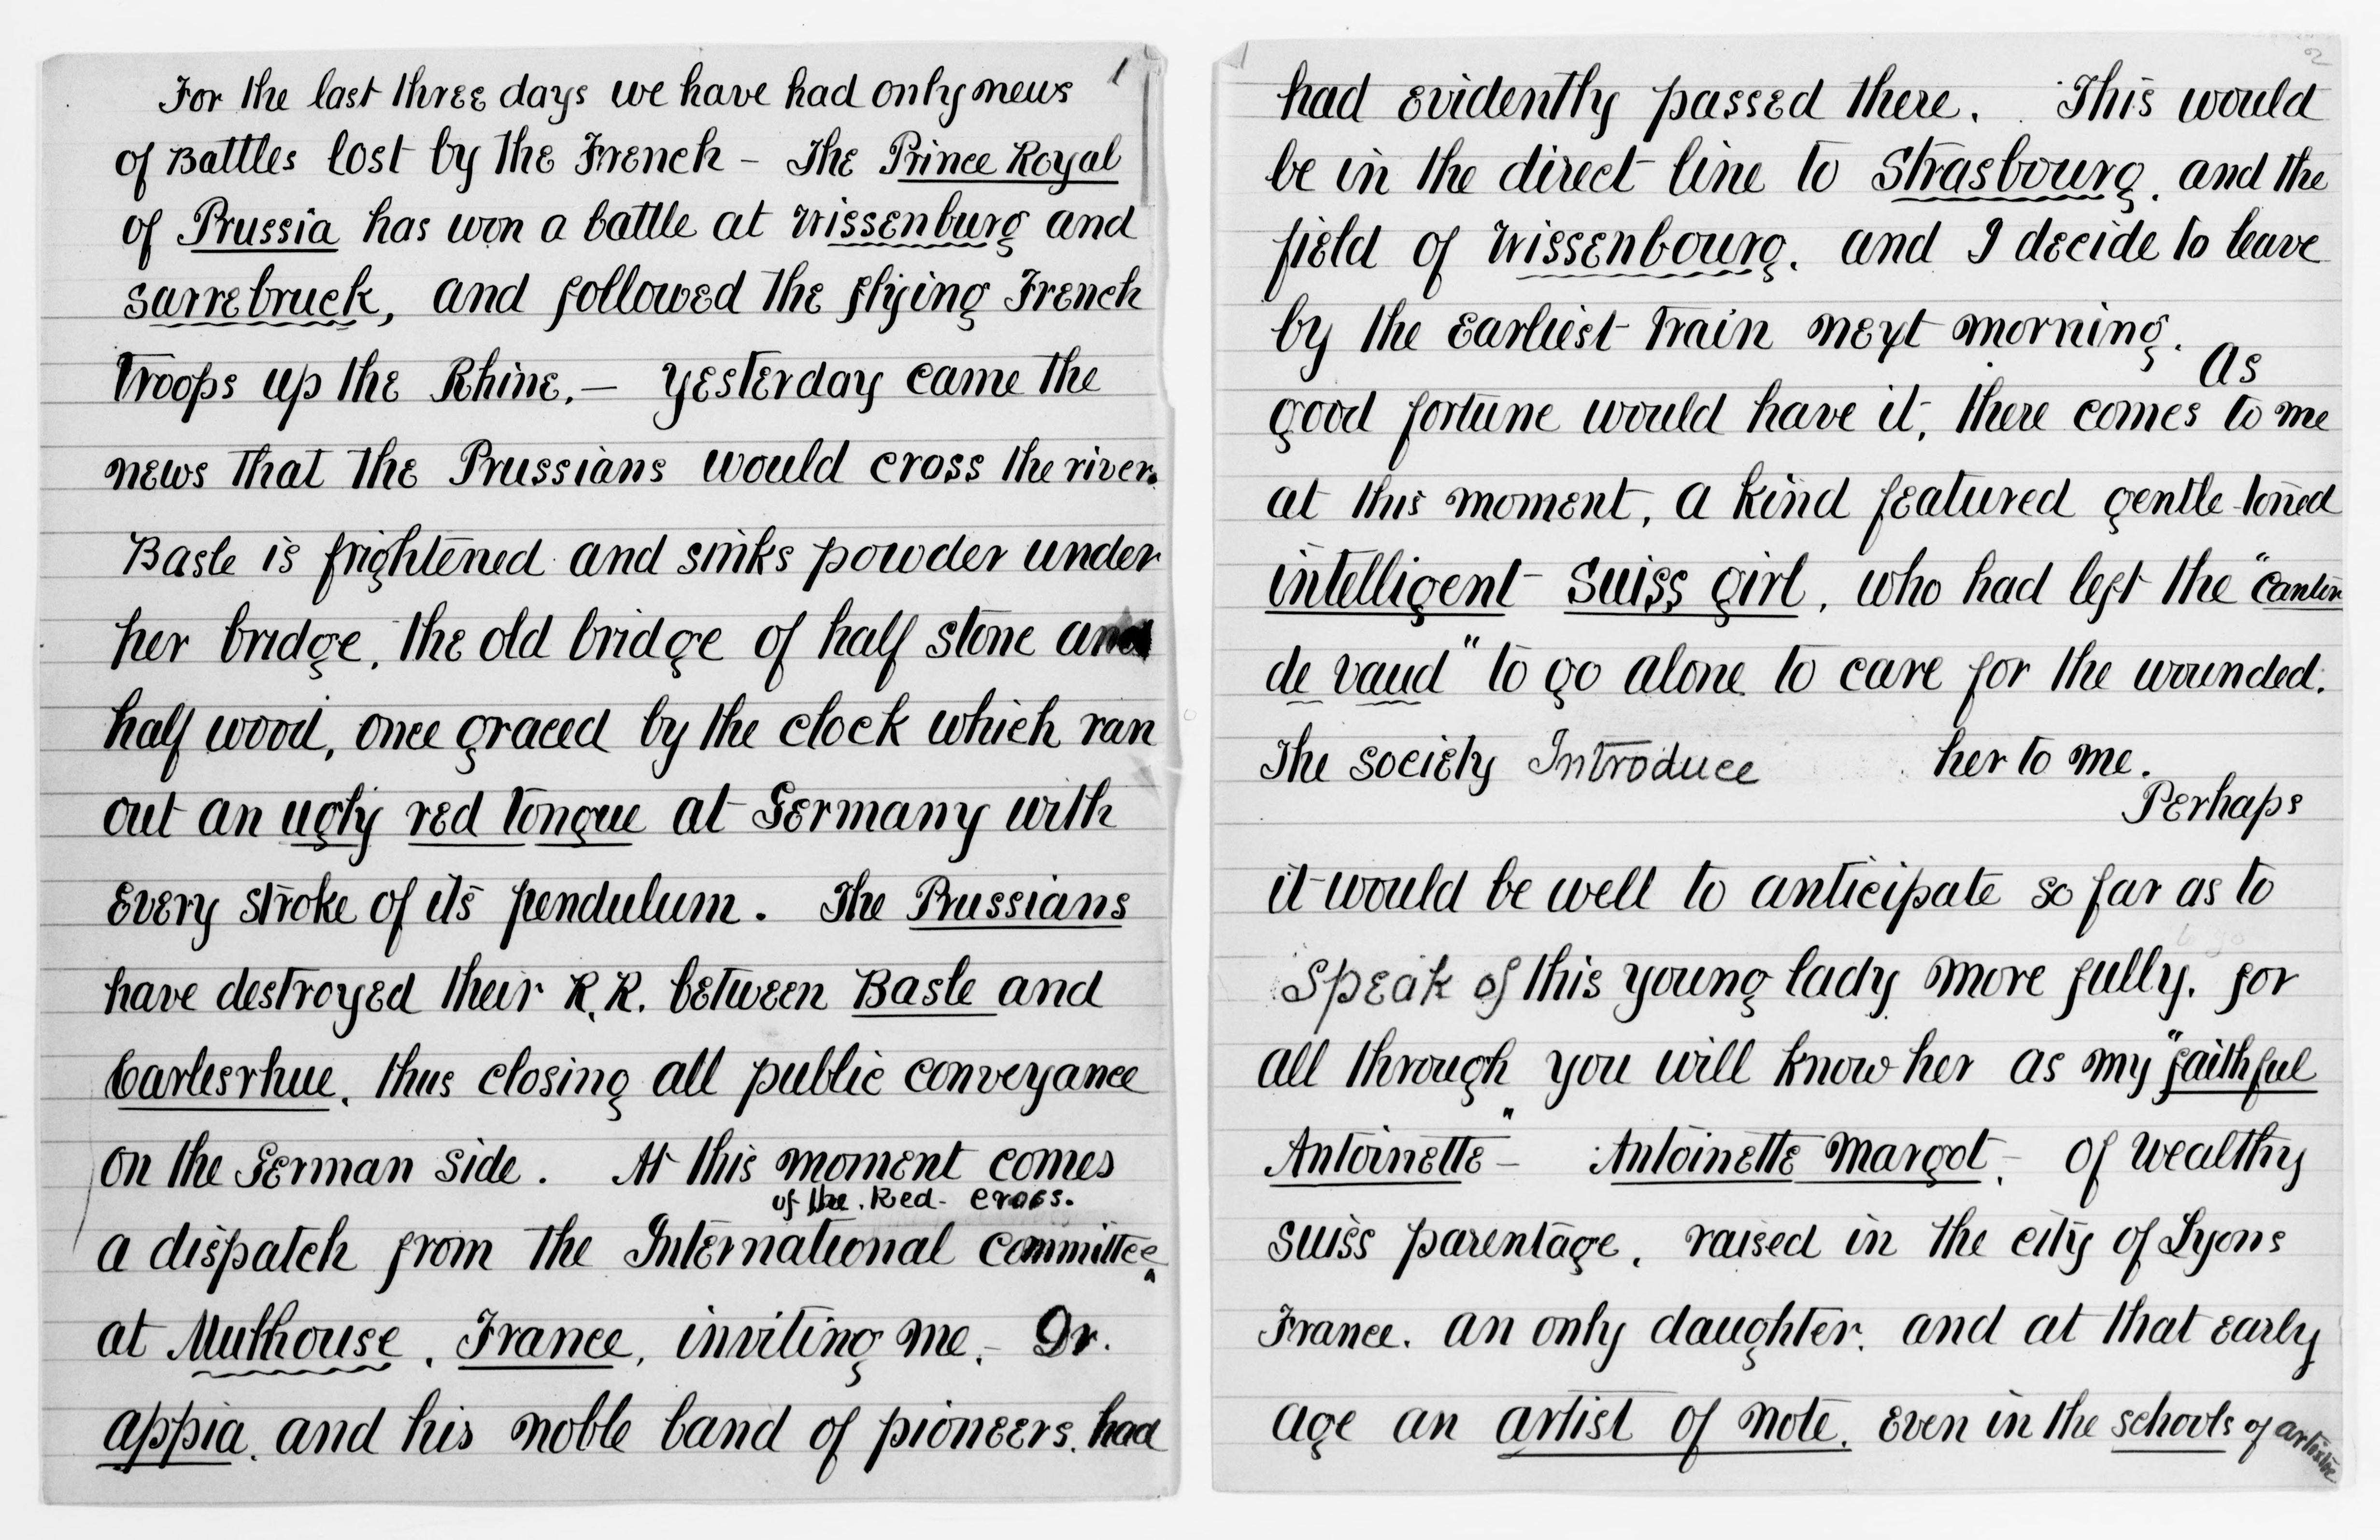 1
For the last three days we have had only news
of Battles lost by the French – The Prince Royal
of Prussia has won a battle at Wissenburg and
Sarrebruck, and followed the flying French
troops up the Rhine. – Yesterday came the
news that the Prussians would cross the river.
Basle is frightened and sinks powder under
her bridge, the old bridge of half stone and
half wood, once graced by the clock which ran
out an ugly red tongue at Germany with
every stroke of its pendulum. The Prussians
have destroyed their R.R. between Basle and
Carlesrhue, thus closing all public conveyance
on the German side. At this moment comes
of the Red Cross.
a dispatch from the International Committee
at Mulhouse, France, inviting me. – Dr.
Appia, and his noble band of pioneers, had
2
had evidently passed there. This would
be in the direct line to Strasbourg, and the
field of Wissenbourg, and I decide to leave
by the earliest train next morning.
As
good fortune would have it, there comes to me
at this moment, a kind featured gentle-toned
intelligent Swiss girl, who had left the "Canton
de Vaud" to go alone to care for the wounded.
The Society Introduce her to me.
Perhaps
it would be well to anticipate so far as to
speak of this young lady more fully, for
all through you will know her as my "faithful
Antoinette" – Antoinette Margot, – of wealthy
Swiss parentage, raised in the city of Lyons
France, an only daughter, and at that early
age an artist of note, even in the schools of artistic